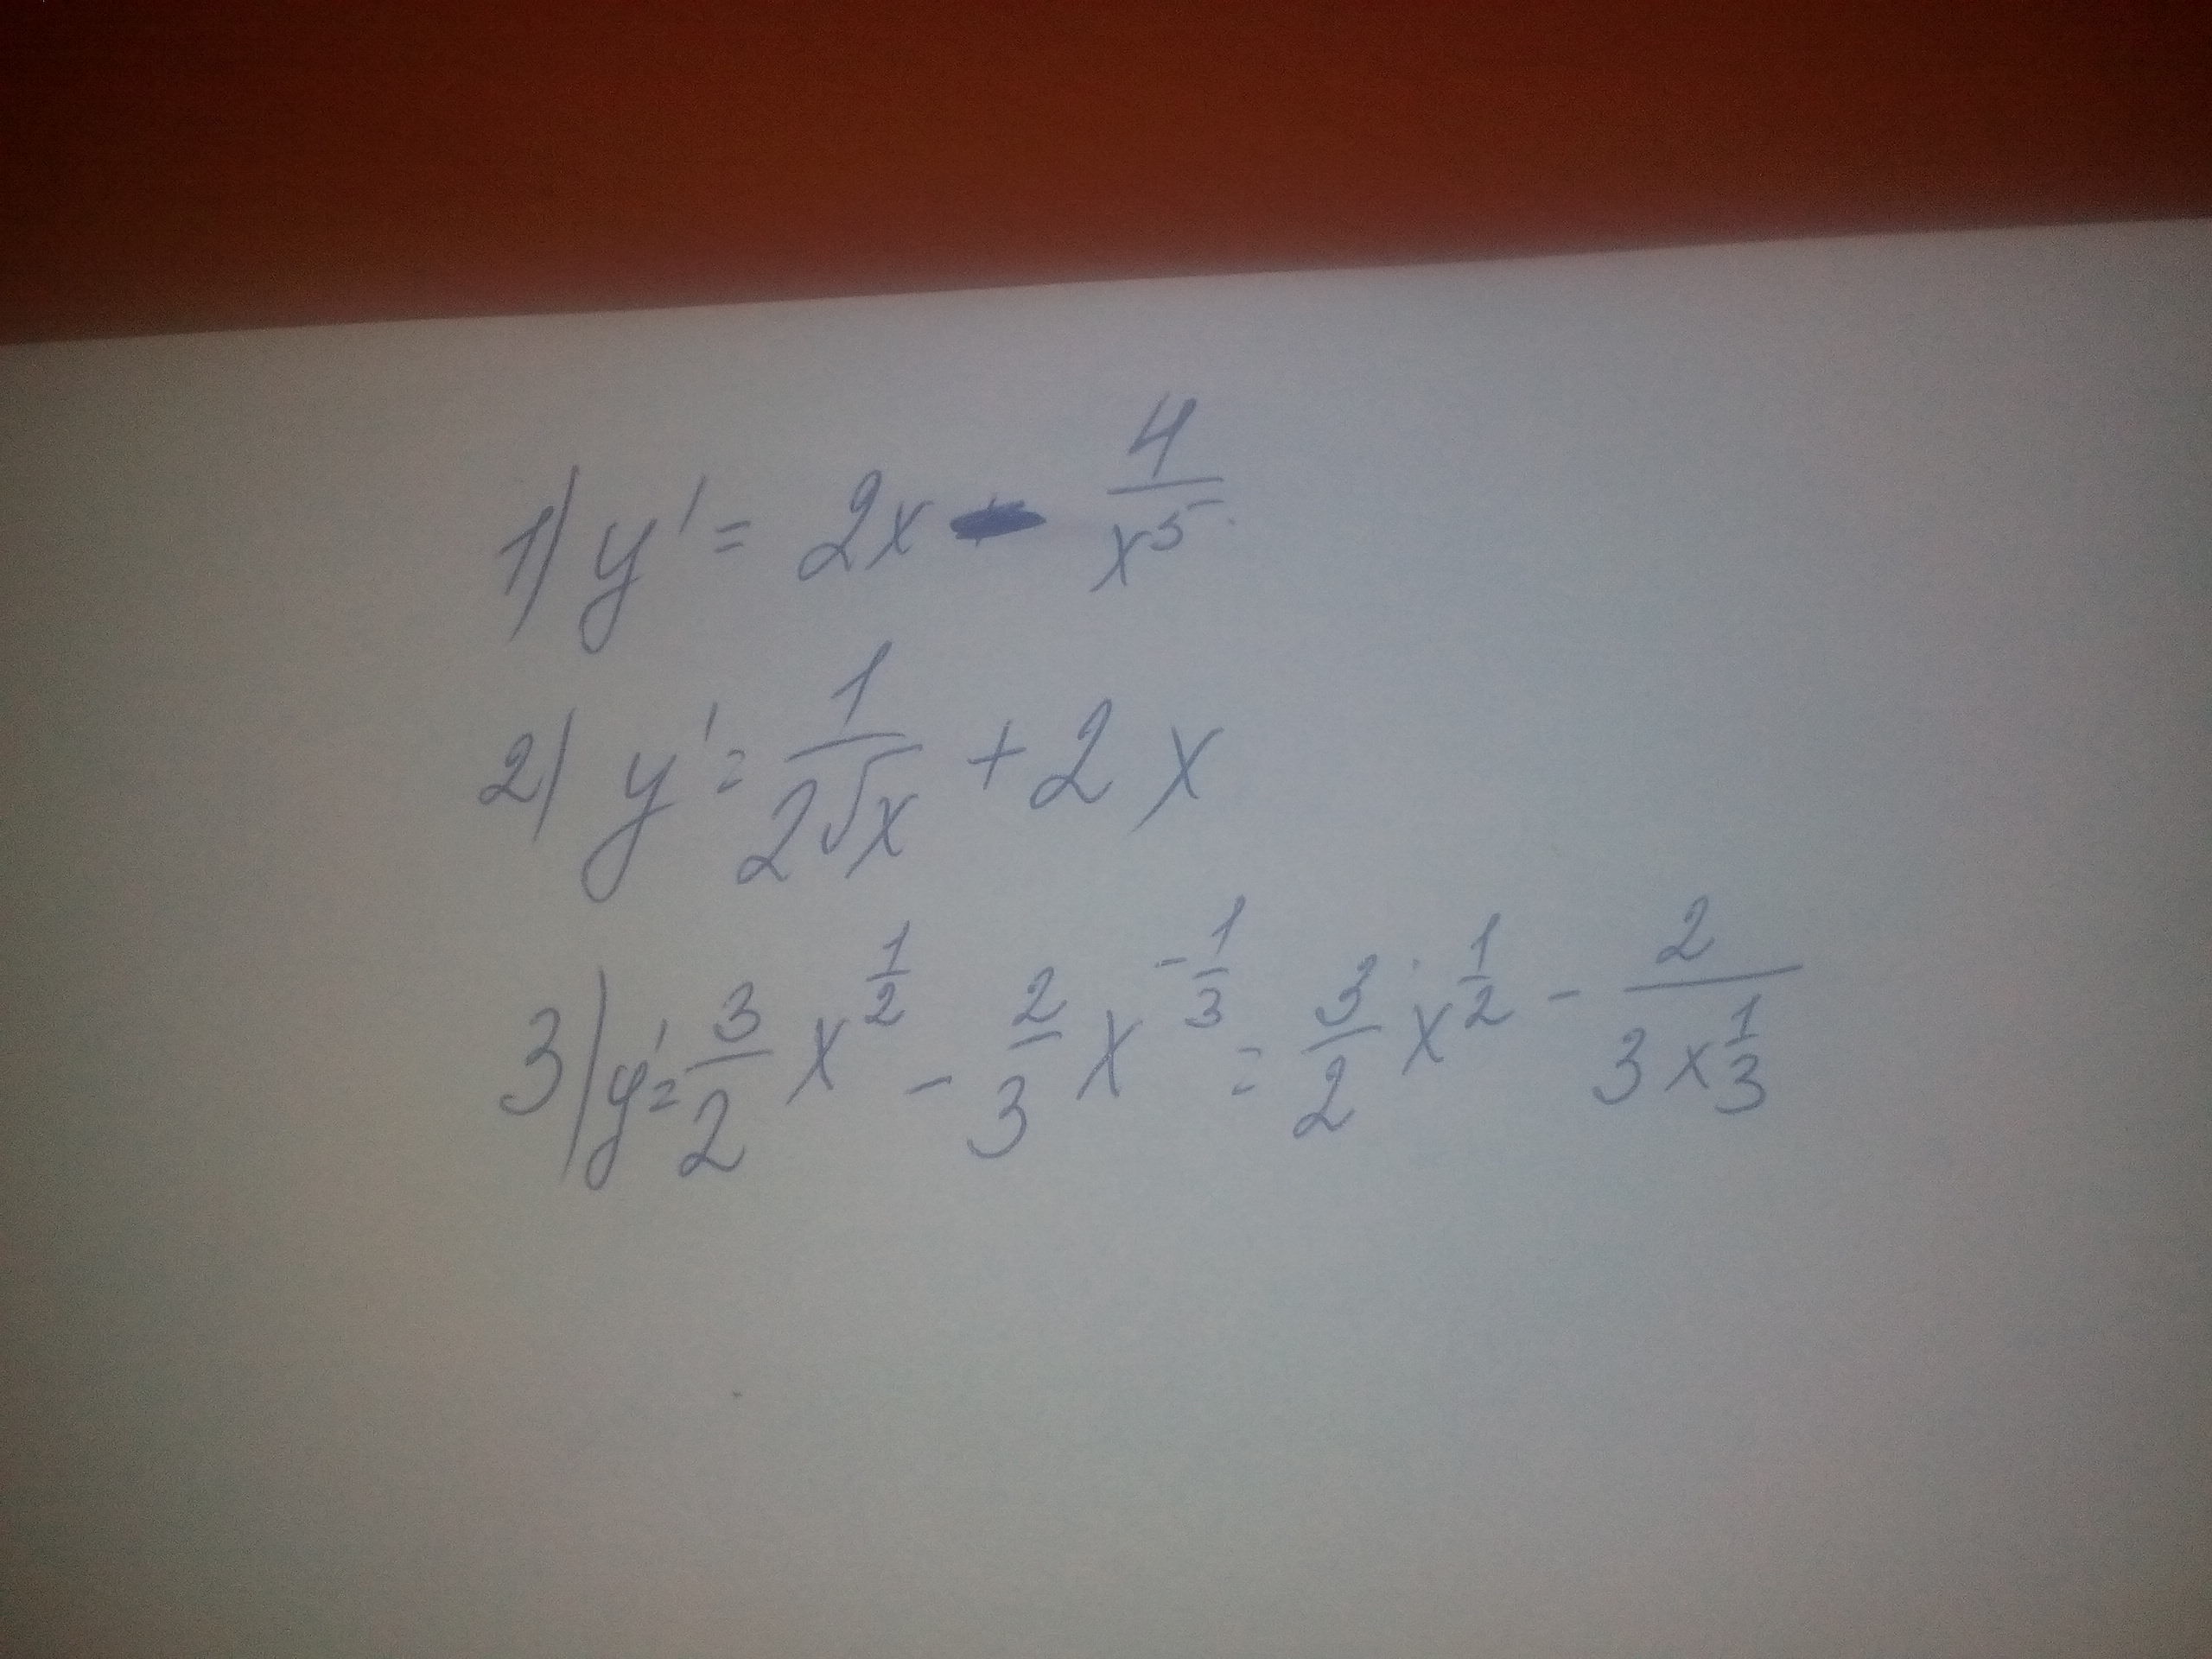 1) y' = 2x - 4/x^5
2) y' = 1/(2√x) + 2x
3) y' = 3/2 x^(1/2) - 2/3 x^(-1/3) = 3/2 x^(1/2) - 2/(3x^(1/3))